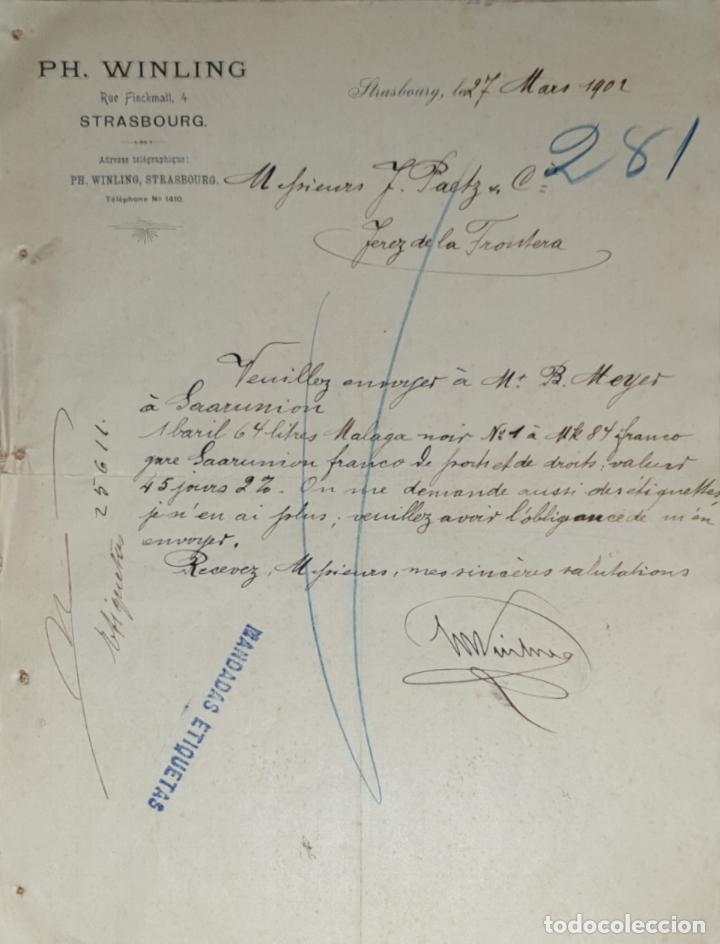 PH. WINLING
Rue Finckmatt, 4
STRASBOURG.
Adresse télégraphique:
PH. WINLING, STRASBOURG.
Téléphone No 1410.
Strasbourg, le 27 Mars 1902
281
Messieurs J. Paetz & Cie
Jerez de la Frontera
Veuillez envoyer à Mr B. Meyer
à Saarunion
1 baril 64 litres Malaga noir No 1 à Mk 84 franco
gare Saarunion franco de ports et de droits; valeur
45 jours 2%. On me demande aussi des étiquettes,
je n'en ai plus; veuillez avoir l'obligeance de m'en
envoyer.
Recevez, Messieurs, mes sincères salutations
Ph Winling
25611.
Etiquetas
MANDADAS ETIQUETAS
todocoleccion